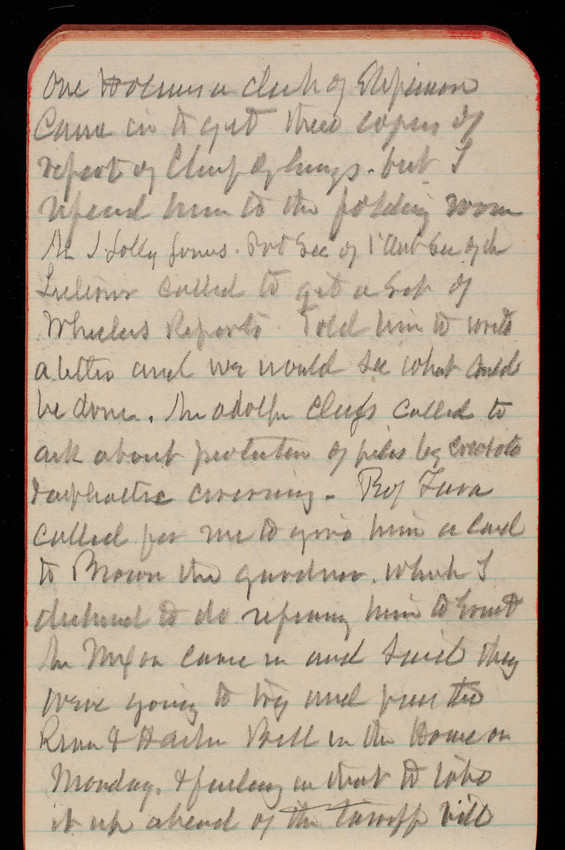 One Holmes a clerk of
Came in to get three copies of
report of Chief of Engs. but I
refered him to the folding room
Mr Jolly Jones. Pvt Sec of 1st Asst Sec of the
Interior called to get a set of
Wheelers Reports Told him to write
a letter and we would see what could
be done. Mr Adolph Cluss called to
ask about protection of piles by creosote
& asphaltic covering - Prof Fava
called for me to give him a card
to Brown the gardner. which I
declined to do refering him to Ernst
Mr came in and said they
were going to try and pass the
River & Harbor Bill in the House on
Monday. & failing in that to take
it up ahead of the Tariff bill